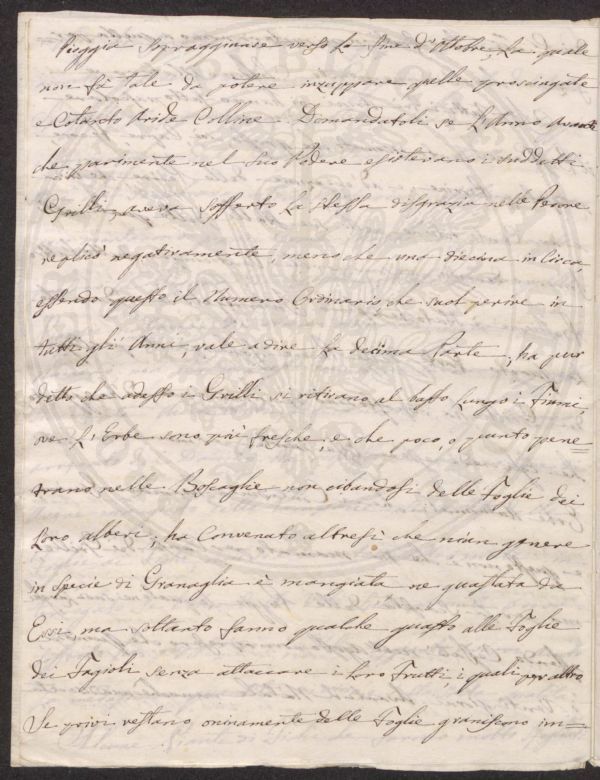 Pioggia sopraggiunse verso la fine d'Ottobre, La quale
non fù tale da potere inzuppare quelle prosciugate
e Cotanto Aride Colline. Domandatoli se L'Anno Avanti
che parimente nel Suo Podere esistevano i suddetti
Grilli, aveva sofferto La stessa disgrazia nelle Pecore
replicò negativamente, meno che una diecina in Circa,
essendo questo il Numero Ordinario, che suol perire in
tutti gli Anni, vale a dire La decima Parte, ha pur
ditto che adesso i Grilli si ritirano al basso Lungo i Fiumi,
ove L'Erbe sono più fresche, e che poco, o punto pene=
trano nelle Boscaglie non cibandosi delle Foglie dei
Loro alberi, ha Convenuto altresì che niun genere
in specie di Granaglia è mangiata ne guastata da
Essi ma soltanto fanno qualche guasto alle Foglie
dei Fagioli senza attaccare i Loro Frutti, i quali per altro
Se privi restano, oninamente delle Foglie graniscono im=